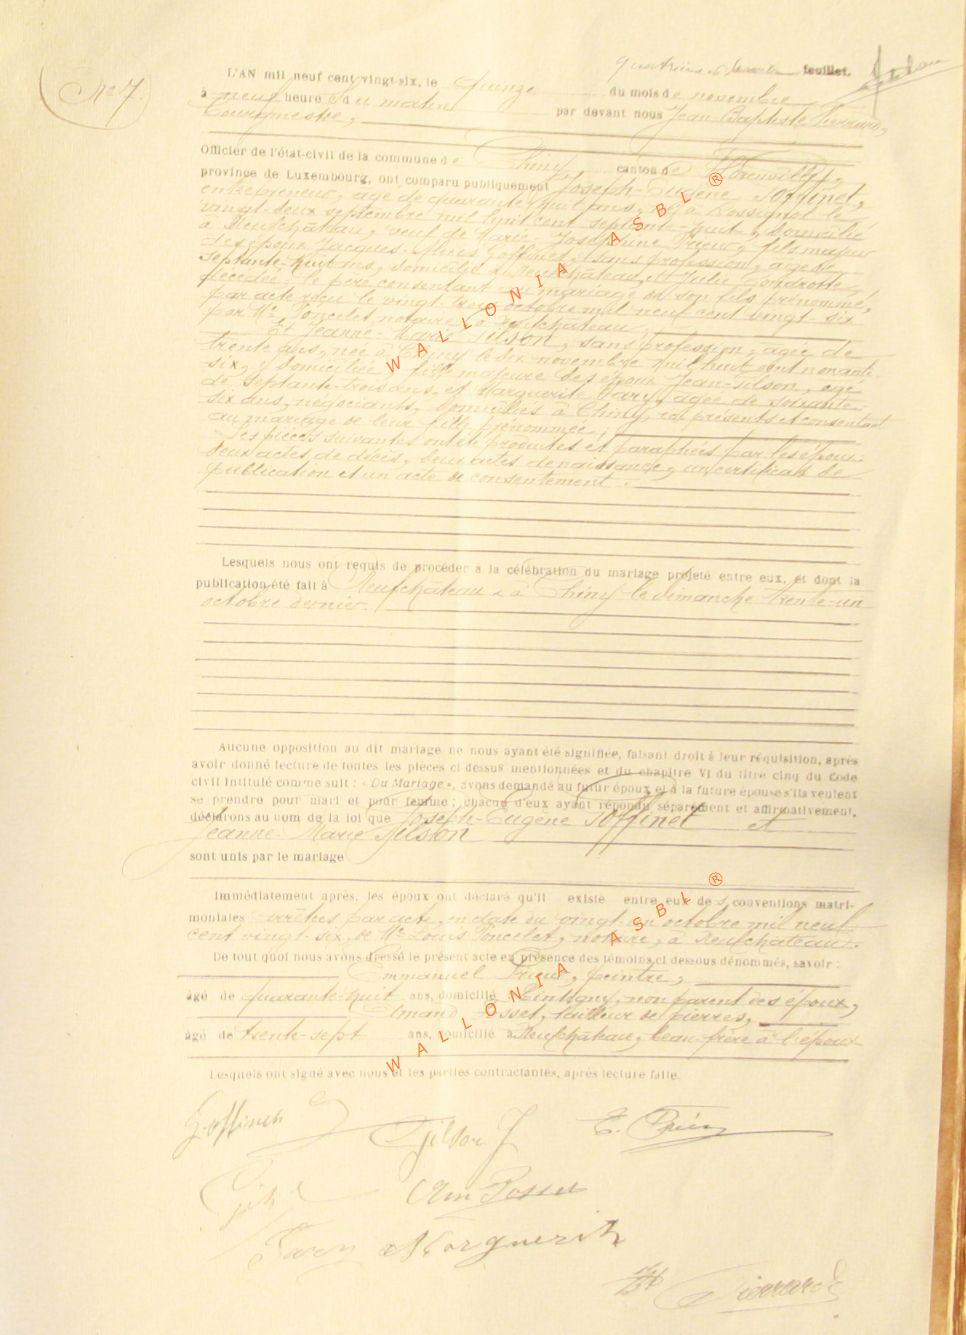 feuillet.
N° 7.
L'AN mil neuf cent vingt-six, le quinze du mois de novembre
à neuf heures du matin par devant nous Jean Baptiste Pierrard,
bourgmestre,
Officier de l'état-civil de la commune de Chiny canton de Florenville,
province de Luxembourg, ont comparu publiquement Joseph-Eugène Goffinet,
entrepreneur, âgé de quarante-huit ans, né à Rossignol le
vingt-deux septembre mil huit cent septante-huit, domicilié
à Neufchâteau, veuf de Marie-Joséphine Prieur, fils majeur
des époux Jacques Goffinet, sans profession, âgé de
septante-huit ans, domicilié à Neufchâteau, et Julie Gondrotte
décédée; le père consentant au mariage de son fils prénommé,
par acte reçu le vingt octobre mil neuf cent vingt-six
par Me Poncelet notaire à Neufchâteau,
Et Jeanne-Marie Gilson, sans profession, âgée de
trente ans, née à Chiny le six novembre mil huit cent nonante-
six, y domiciliée, fille majeure des époux Jean Gilson, âgé
de septante-trois ans, et Marguerite Pary, âgée de soixante-
six ans, négociants, domiciliés à Chiny, ici présents et consentant
au mariage de leur fille prénommée.
Les pièces suivantes ont été produites et paraphées par les époux:
deux actes de décès, deux actes de naissance, un certificat de
publication et un acte de consentement.
Lesquels nous ont requis de procéder à la célébration du mariage projeté entre eux, et dont la
publication été fait à Neufchâteau & à Chiny le dimanche trente-un
octobre dernier.
Aucune opposition au dit mariage ne nous ayant été signifiée, faisant droit à leur réquisition, après
avoir donné lecture de toutes les pièces ci dessus mentionnées et du chapitre VI du titre cinq du Code
civil intitulé comme suit : « Du Mariage », avons demandé au futur époux et à la future épouse s'ils veulent
se prendre pour mari et pour femme ; chacun d'eux ayant répondu séparément et affirmativement,
déclarons au nom de la loi que Joseph-Eugène Goffinet et
Jeanne-Marie Gilson
sont unis par le mariage
Immédiatement après, les époux ont déclaré qu'il existe entre eux des conventions matri-
moniales arrêtées par acte, en date du vingt-un octobre mil neuf
cent vingt-six, de Me Louis Poncelet, notaire, à Neufchâteau.
De tout quoi nous avons dressé le présent acte en présence des témoins ci dessous dénommés, savoir :
Emmanuel Prieur, peintre,
âgé de quarante-huit ans, domicilié à Tintigny, non parent des époux,
Armand Rosset, tailleur de pierres,
âgé de trente-sept ans, domicilié à Neufchâteau, beau-frère à l'époux
Lesquels ont signé avec nous et les parties contractantes, après lecture faite.
Goffinet
Gilson J
E. Prieur
Arm Rosset
Pary Marguerite
Pierrard
WALLONIA ASBL ®
WALLONIA ASBL ®